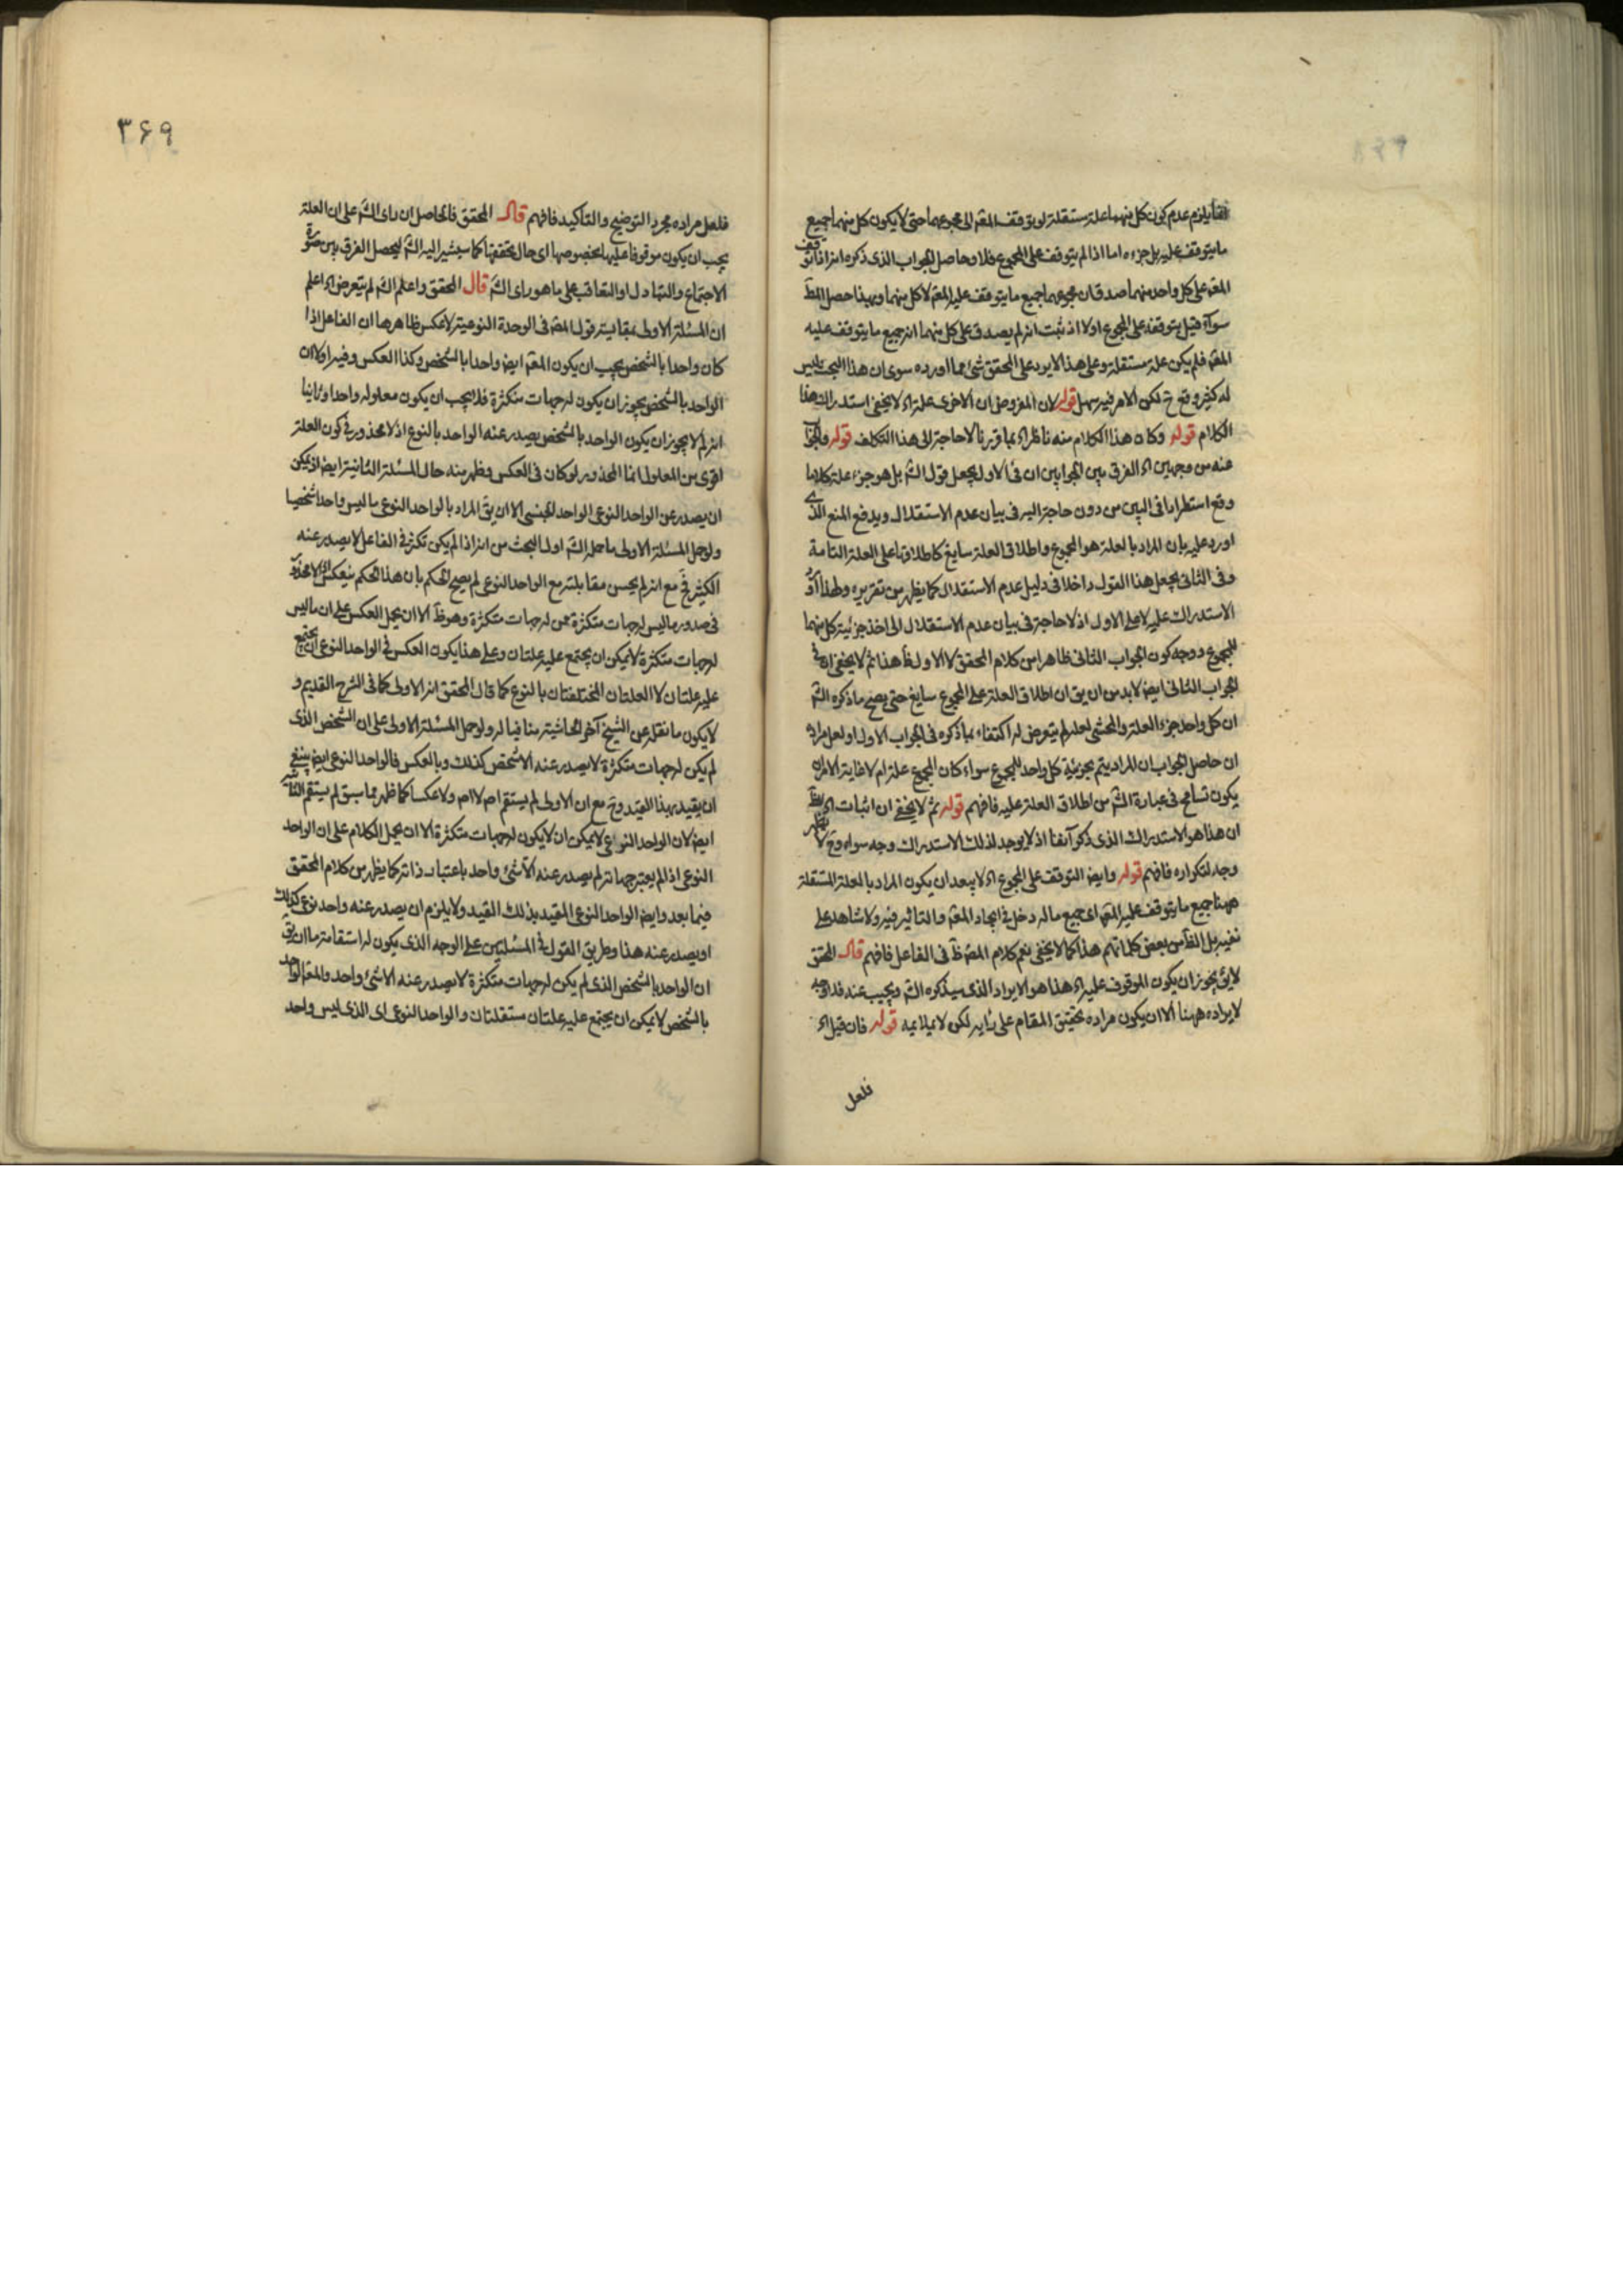 انما يلزم عدم كون كل منهما علة مستقلة لو توقف المعه الى مجموعهما حتى لا يكون كل منهما جميع
ما يتوقف عليه بل جزءه اما اذا لم يتوقف على المجموع فلا وحاصل الجواب الذى ذكره انه اذا توقف
المعه على كل واحد منهما صدق ان مجموعهما جميع ما يتوقف عليه المعه لا كل منهما وبهذا حصل المط
سواء قيل بتوقفه على المجموع اولا اذ ثبت انه لم يصدق على كل منهما انه جميع ما يتوقف عليه
المعه فلم يكن علة مستقلة وعلى هذا لا يرد على المحقق شئ مما اورده سوى ان هذا البحث ليس
له كثير وقع ح لكن الامر فيه سهل قوله لان المفروض ان الاخرى علة اه لا يخفى استدراك هذا
الكلام قوله وكان هذا الكلام منه ناظر اه بما قررنا لا حاجة الى هذا التكلف قوله والجواب
عنه من وجهين اه الفرق بين الجوابين ان فى الاول يجعل قول الشه بل هو جزء علة كلاما
وقع استطرادا فى البين من دون حاجة اليه فى بيان عدم الاستقلال ويدفع المنع الذى
اورد عليه بان المراد بالعلة هو المجموع واطلاق العلة سايغ كاطلاقها على العلة التامة
وفى الثانى يجعل هذا القول داخلا فى دليل عدم الاستقلال كما يظهر من تقريره ولهذا اورد
الاستدراك عليه لا على الاول اذ لا حاجة فى بيان عدم الاستقلال الى اخذ جزئية كل منهما
للمجموع ووجه كون الجواب الثانى ظاهرا من كلام المحقق لا الاول ظ هذا ثم لا يخفى ان فى
الجواب الثانى ايض لابد من ان يق ان اطلاق العلة على المجموع سايغ حتى يصح ما ذكره الشه
ان كل واحد جزء العلة والمحشى لعله لم يتعرض له اكتفاء بما ذكره فى الجواب الاول او لعل مراده
ان حاصل الجواب ان المراد يتم بجزئية كل واحد للمجموع سواء كان المجموع علة ام لا غاية الامر ان
يكون تسامح فى عبارة الشه من اطلاق العلة عليه فافهم قوله ثم لا يخفى ان اثبات اه يظ
ان هذا هو الاستدراك الذى ذكر آنفا اذ لا يوجد لذلك الاستدراك وجه سواه وح لا يظهر
وجه لتكراره فافهم قوله وايض التوقف على المجموع اه لا يبعد ان يكون المراد بالعلة المستقلة
ههنا جميع ما يتوقف عليه المعه اى جميع ما له دخل فى ايجاد المعه والتاثير فيه ولا شاهد على
نفيه بل الظ من بعض كلماتهم هذا كما لا يخفى نعم كلام المصه ظ فى الفاعل فافهم قال المحقق
لا يق يجوز ان يكون الموقوف عليه اه هذا هو الايراد الذى سيذكره الشه ويجيب عنه فلا وجه
لايراده ههنا الا ان يكون مراده تحقيق المقام على رأيه لكن لا يلايمه قوله فان قيل اه
فلعل
۳۶۹
فلعل مراده مجرد التوضيح والتاكيد فافهم قال المحقق فالحاصل ان راى الشه على ان العلة
يجب ان يكون موقوفا عليها بخصوصها اى حال تحققها كما سيشير اليه الشه ليحصل الفرق بين صورة
الاجتماع والتبادل او التعاقب على ما هو راى الشه قال المحقق واعلم الشه لم يتعرض اه اعلم
ان المسئلة الاولى بمقايسة قول المصه فى الوحدة النوعية لا عكس ظاهرها ان الفاعل اذا
كان واحدا بالشخص يجب ان يكون المعه ايض واحدا بالشخص وكذا العكس وفيه اولا ان
الواحد بالشخص يجوز ان يكون له جهات متكثرة فلا يجب ان يكون معلوله واحدا وثانيا
انه لم لا يجوز ان يكون الواحد بالشخص يصدر عنه الواحد بالنوع اذ لا محذور فى كون العلة
اقوى من المعلول انما المحذور لو كان فى العكس فظهر منه حال المسئلة الثانية ايض اذ يمكن
ان يصدر عن الواحد النوعى الواحد الجنسى الا ان يق المراد بالواحد النوعى ما ليس واحدا شخصيا
ولو حمل المسئلة الاولى ما حمله الشه اول البحث من انه اذا لم يكن تكثر فى الفاعل لا يصدر عنه
الكثير فح مع انه لم يحسن مقابلته مع الواحد النوعى لم يصح الحكم بان هذا الحكم ينعكس اذ لا محذور
فى صدور ما ليس له جهات متكثرة عن له جهات متكثرة وهو ظ الا ان يحمل العكس على ان ما ليس
له جهات متكثرة لا يمكن ان يجتمع عليه علتان وعلى هذا يكون العكس فى الواحد النوعى ان يجتمع
عليه علتان لا العلتان المختلفتان بالنوع كما قال المحقق انه الاولى كما فى الشرح القديم و
لا يكون ما نقله عن الشيخ آخر الحاشية منافيا له ولو حمل المسئلة الاولى على ان الشخص الذى
لم يكن له جهات متكثرة لا يصدر عنه الا شخص كذلك وبالعكس فالواحد النوعى ايض ينبغى
ان يقيد بهذا القيد وح مع ان الاولى لم يستقم اصلا ولا عكسا كما ظهر مما سبق لم يستقم الثانية
ايض لان الواحد النوعى لا يمكن ان لا يكون له جهات متكثرة الا ان يحمل الكلام على ان الواحد
النوعى اذا لم يعتبر جهاته لم يصدر عنه الا شئ واحد باعتبار ذاته كما يظهر من كلام المحقق
فيما بعد وايض الواحد النوعى المقيد بذلك القيد ولا يلزم ان يصدر عنه واحد نوعى كذلك
او يصدر عنه هذا وطريق القول فى المسئلتين على الوجه الذى يكون له استقامة ما ان يق
ان الواحد بالشخص الذى لم يكن له جهات متكثرة لا يصدر عنه الا شئ واحد والمعه الواحد
بالشخص لا يمكن ان يجتمع عليه علتان مستقلتان والواحد النوعى اى الذى ليس واحد